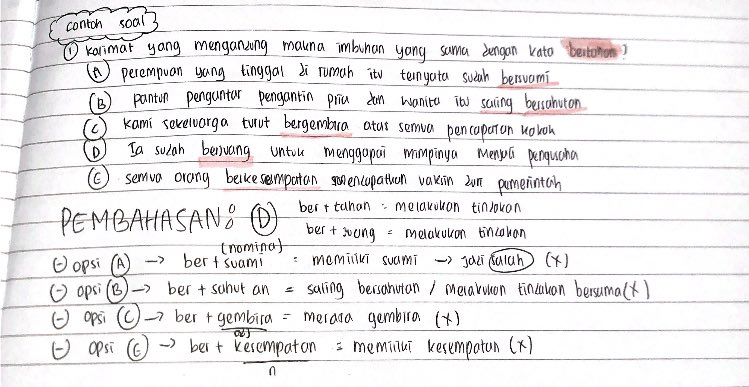 contoh soal
① Kalimat yang mengandung makna imbuhan yang sama dengan kata bertahan?
Ⓐ perempuan yang tinggal di rumah itu ternyata sudah bersuami
Ⓑ pantun pengantar pengantin pria dan wanita itu saling bersahutan
Ⓒ kami sekeluarga turut bergembira atas semua pencapaian kakak
Ⓓ Ia sudah berjuang untuk menggapai mimpinya menjadi pengusaha
Ⓔ semua orang berkesempatan mendapatkan vaksin dari pemerintah
PEMBAHASAN: Ⓓ ber + tahan = melakukan tindakan
ber + juang = melakukan tindakan
(nomina)
(-) opsi Ⓐ → ber + suami = memiliki suami → jadi salah (x)
(-) opsi Ⓑ → ber + sahut an = saling bersahutan / melakukan tindakan bersama (x)
(-) opsi Ⓒ → ber + gembira = merasa gembira (x)
adj
(-) opsi Ⓔ → ber + kesempatan = memiliki kesempatan (x)
n